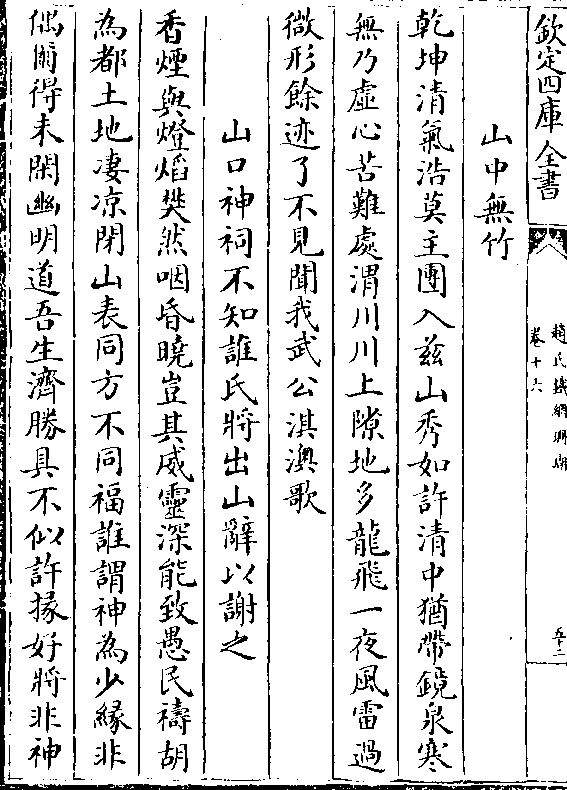 欽定四庫全書
趙氏鐵網珊瑚
卷十六
五十二
山中無竹
乾坤清氣浩莫主團入兹山秀如許清中猶帶鏡泉寒
無乃虛心苦難處渭川川上隙地多龍飛一夜風雷過
微形餘迹了不見聞我武公淇澳歌
山口神祠不知誰氏將出山辭以謝之
香煙與燈熖㷊然咽昏曉豈其威靈深能致愚民禱胡
為都土地凄凉閉山表同方不同福誰謂神為少緣非
偶爾得未閑幽明道吾生濟勝具不似許掾好將非神